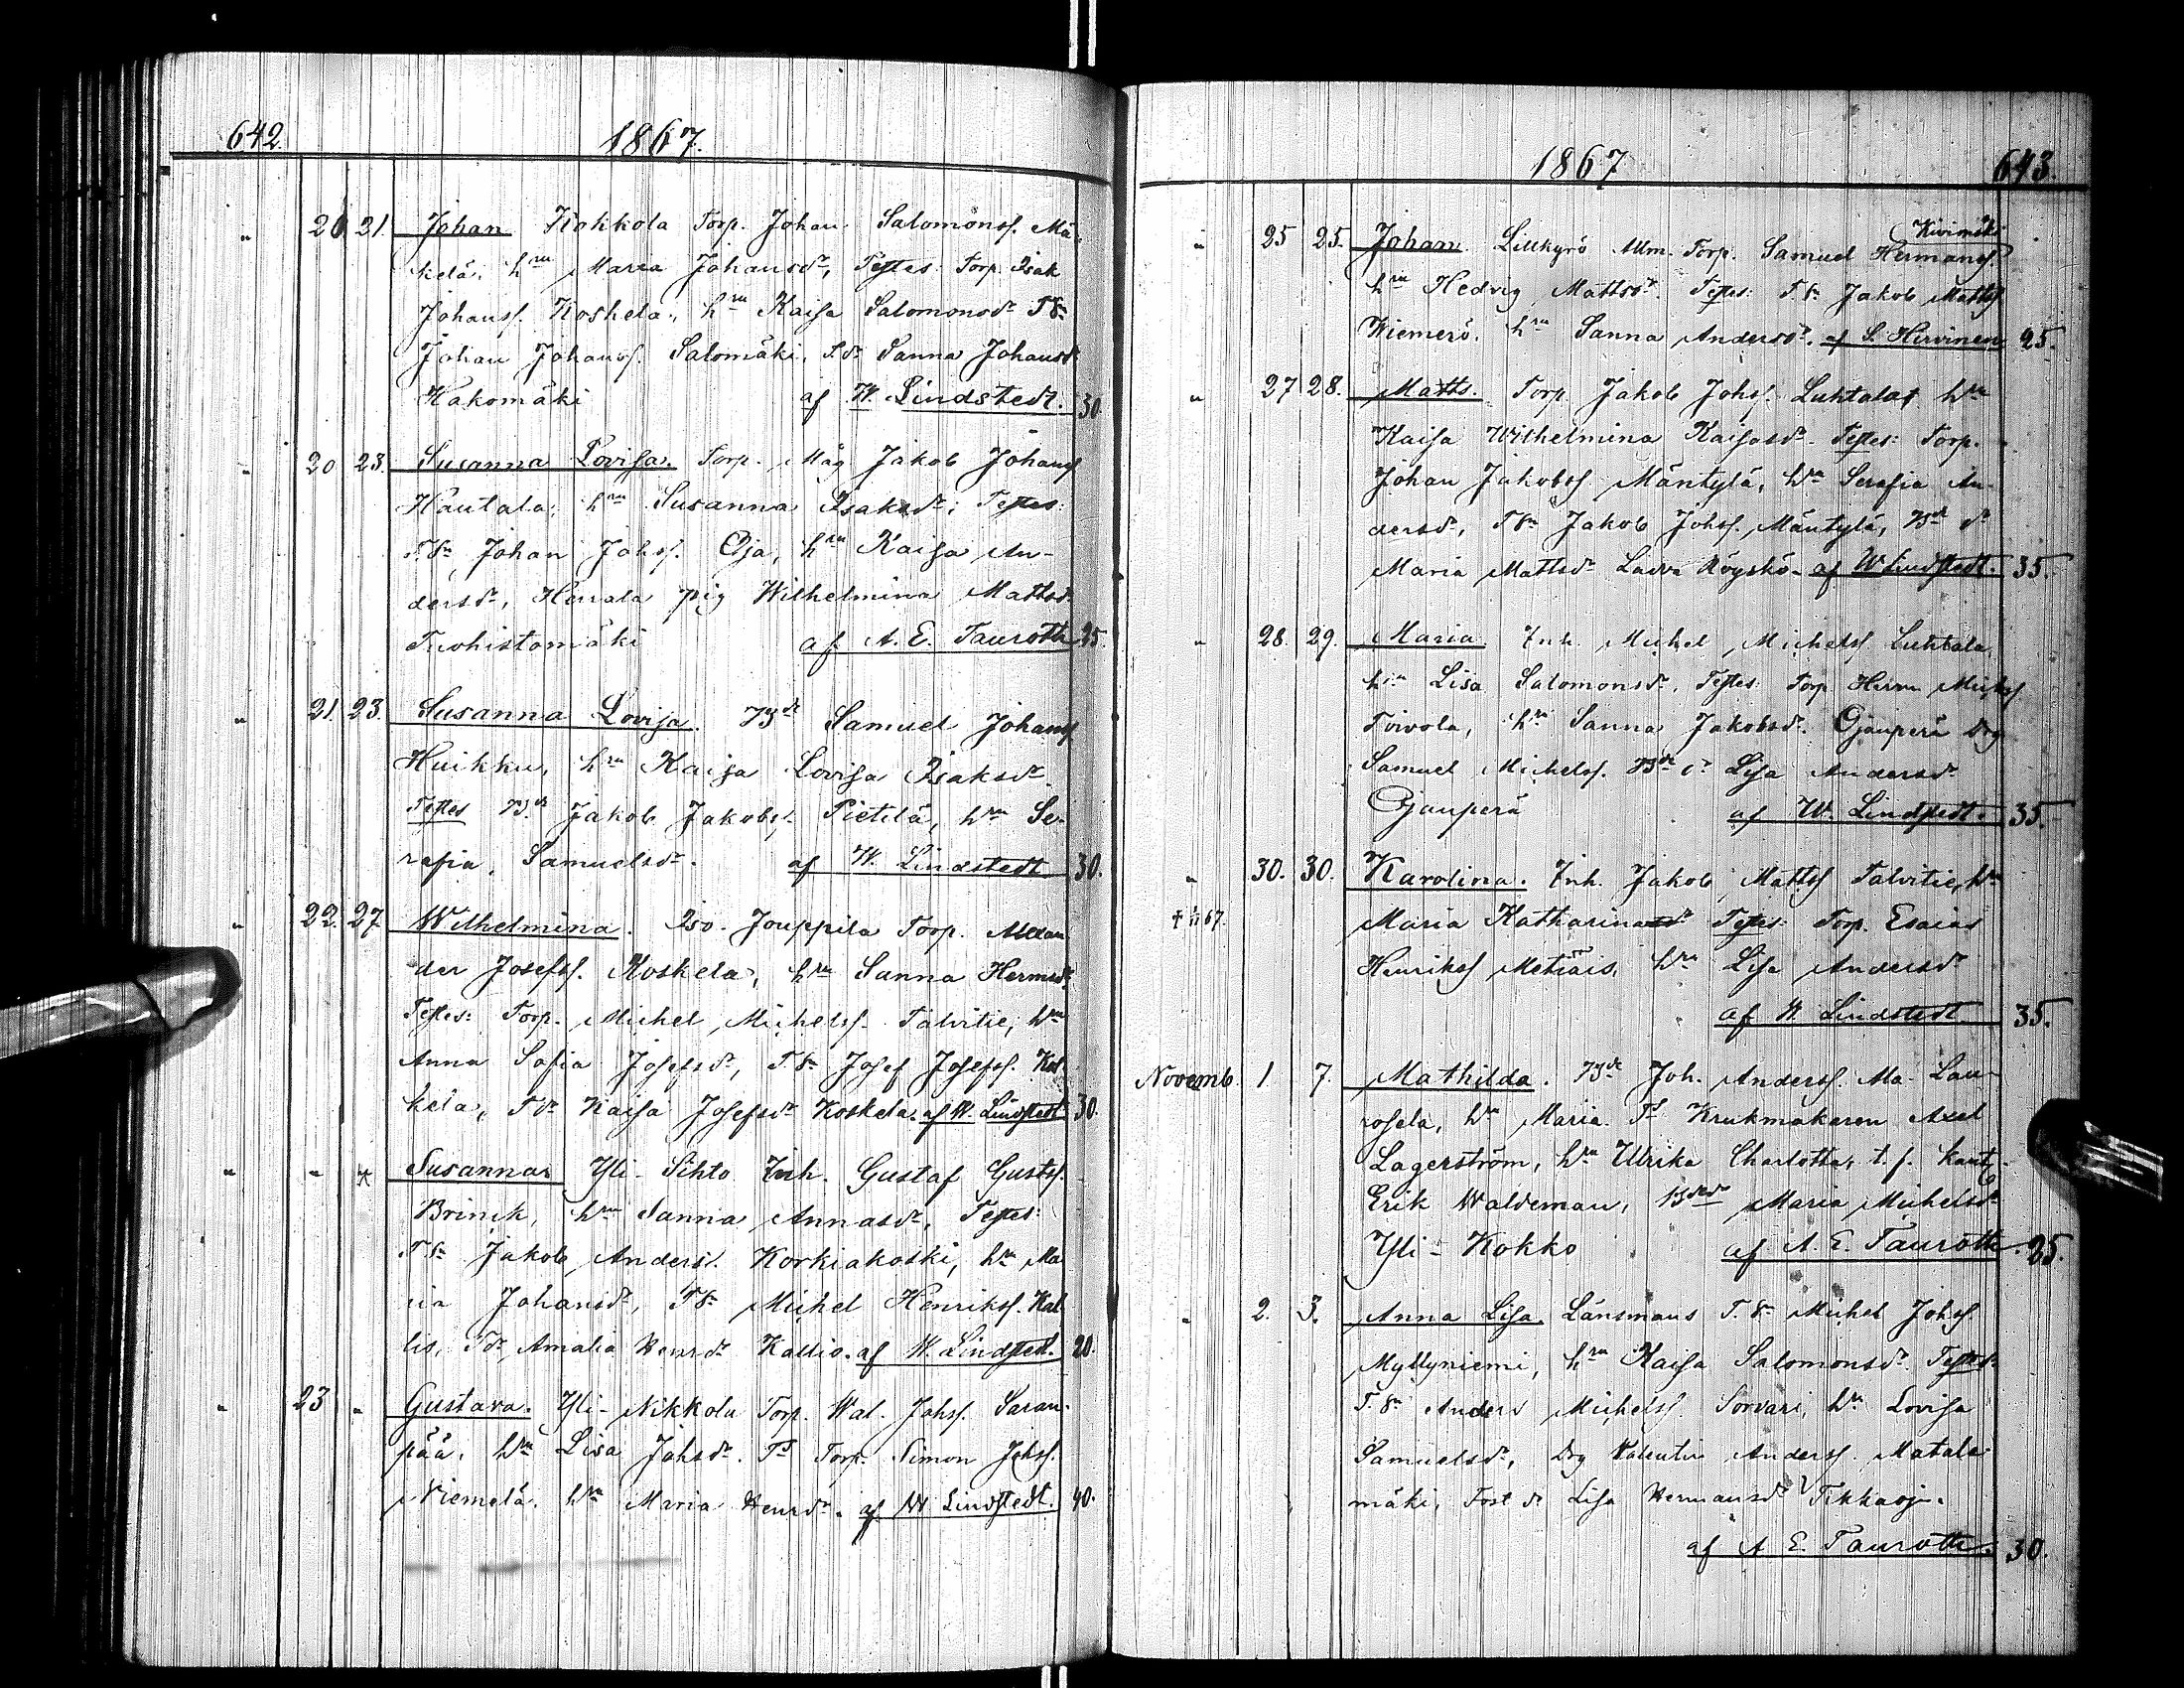 642. 1867.
" 20 21. Johan Kokkola Torp. Johan Salomonss. Mä-
kelä, hru Maria Johansdr, Testes: Torp. Isak
Johanss. Koskela, hru Kaisa Salomonsdr TSn
Johan Johanss. Salomäki, Tdr Sanna Johansdr
Hakomäki af W. Lindstedt. 30.
" 20 23. Susanna Lovisa. Torp. Måg Jakob Johanss
Hautala, hru Susanna Isaksdr; Testes:
T.Sn Johan Johss. Oja, hru Kaisa An-
dersdr, Herrala pig Wilhelmina Mattsdr
Tuohistomäki af A. E. Tauroth 25.
" 21. 23. Susanna Lovisa. Bde Samuel Johanss
Huikku, hru Kaisa Lovisa Isaksdr
Testes Bde Jakob Jakobss. Pietilä, hru Se-
rafia, Samuelsdr. af W. Lindstedt 30.
" 22. 27 Wilhelmina. Iso-Jouppila Torp. Alexan
der Josefss. Koskela, hru Sanna Hermsdr
Testes: Torp. Michel Michelss. Talvitie, hru
Anna Sofia Josefsdr, T.Sn Josef Josefss. Kos
kela, Tdr Kaisa Josefsdr Koskela. af W. Lindstedt 30.
" " * Susanna Yli-Sihto Inh. Gustaf Gustss.
Brinck, hru Sanna Annasdr, Testes:
T.Sn Jakob Anderss. Korkiakoski, hru Ma
ria Johansdr, TSn Michel Henrikss. Kal
lio, Tdr Amalia Henrsdr Kallio. af W. Lindstedt. 20.
" 23 " Gustava. Yli-Nikkola Torp. Wal. Johss. Saran-
pää, hru Lisa Johsdr. Ts Torp. Simon Johss.
Niemelä. hru Maria Henrsdr. af W Lindstedt. 40.
1867 643.
Kivimäki
" 25 25. Johan Lillkyrö Alm. Torp. Samuel Hermanss.
hru Hedvig Mattsdr. Testes: T.Sn Jakob Mattss
Wiemerö. hru Sanna Andersdr. af S. Hirvinen 25.
" 27 28. Matts. Torp. Jakob Johss. Luhtala, hru
Kaisa Wilhelmina Kaisasdr. Testes: Torp.
Johan Jakobss Mäntylä, hru Serafia An-
dersdr, TSn Jakob Johss. Mäntylä, Bde dr
Maria Mattsdr Ladva Röyskö. af W Lindstedt. 35.
" 28. 29. Maria Inh. Michel Michelss. Luhtala
hru Lisa Salomonsdr. Testes: Torp Herm Michss
Toivola, hru Sanna Jakobsdr. Ojanperä Drg
Samuel Michelss. Bde dr Lisa Andersdr
Ojanperä af W. Lindstedt. 35.
" 30. 30. Karolina. Inh. Jakob Mattss Talvitie, hru
† 67. Maria Katharinasdr Testes: Torp. Esaias
Henrikss Metiäis, hru Lisa Andersdr
af W Lindstedt 35.
Novemb. 1 7. Mathilda. Bde Joh. Anderss. Ala-Lau-
rosela, hru Maria. Ts Krukmakaren Axel
Lagerström, hru Ulrika Charlotta, t.f. kants.
Erik Waldeman, Bdedr Maria Michelsdr
Yli-Kokko af A. E. Tauroth 25.
" 2. 3. Anna Lisa. Länsmans T.Sn Michel Johss.
Myllyniemi, hru Kaisa Salomonsdr. Testes:
T.Sn Anders Michelss. Sorvari, hru Lovisa
Samuelsdr, Drg Valentin Anderss. Matala
mäki, Tost dr Lisa Hermansdr Tikkaoja.
af A E. Tauroth. 30.